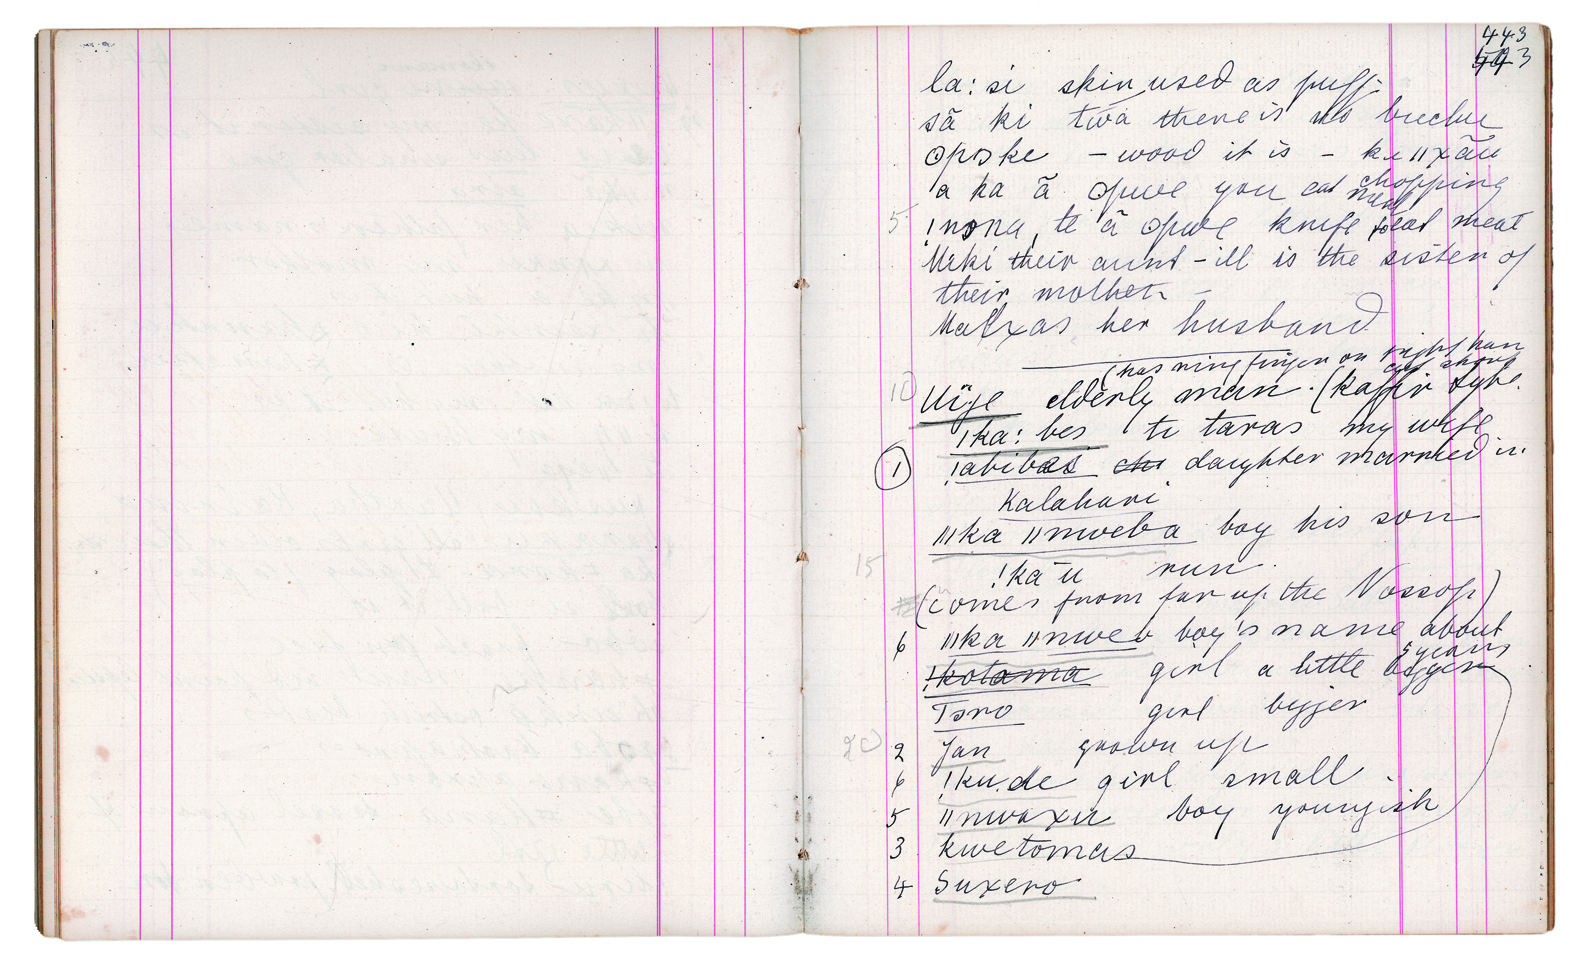 443
la: si skin used as puff:
sã ki twa there is no buchu
ʘpɔke – wood it is – ku ǁxãu
a ka ã ʘpwe you eat chopping
meat
5 !nɔna, te ã ʘpwe knife to eat meat
their aunt – ill is the sister of
their mother –
her husband
(has ring finger on right han
cut short
10 elderly man. (kaffir type.
!ka: bes ti taras my wife
1 !abibes daughter married in
Kalahari
ǁka ǁnweba boy his son
15 !ka u run.
(comes from far up the Nossop)
6 ǁka ǁnweb boy's name about
5 years
!kotama girl a little bigger
Tsro girl bigger
20
2 Jan grown up
6 !ku.de girl small.
5 ǁnwaxu boy youngish
3 kwetomas
4 Suxero